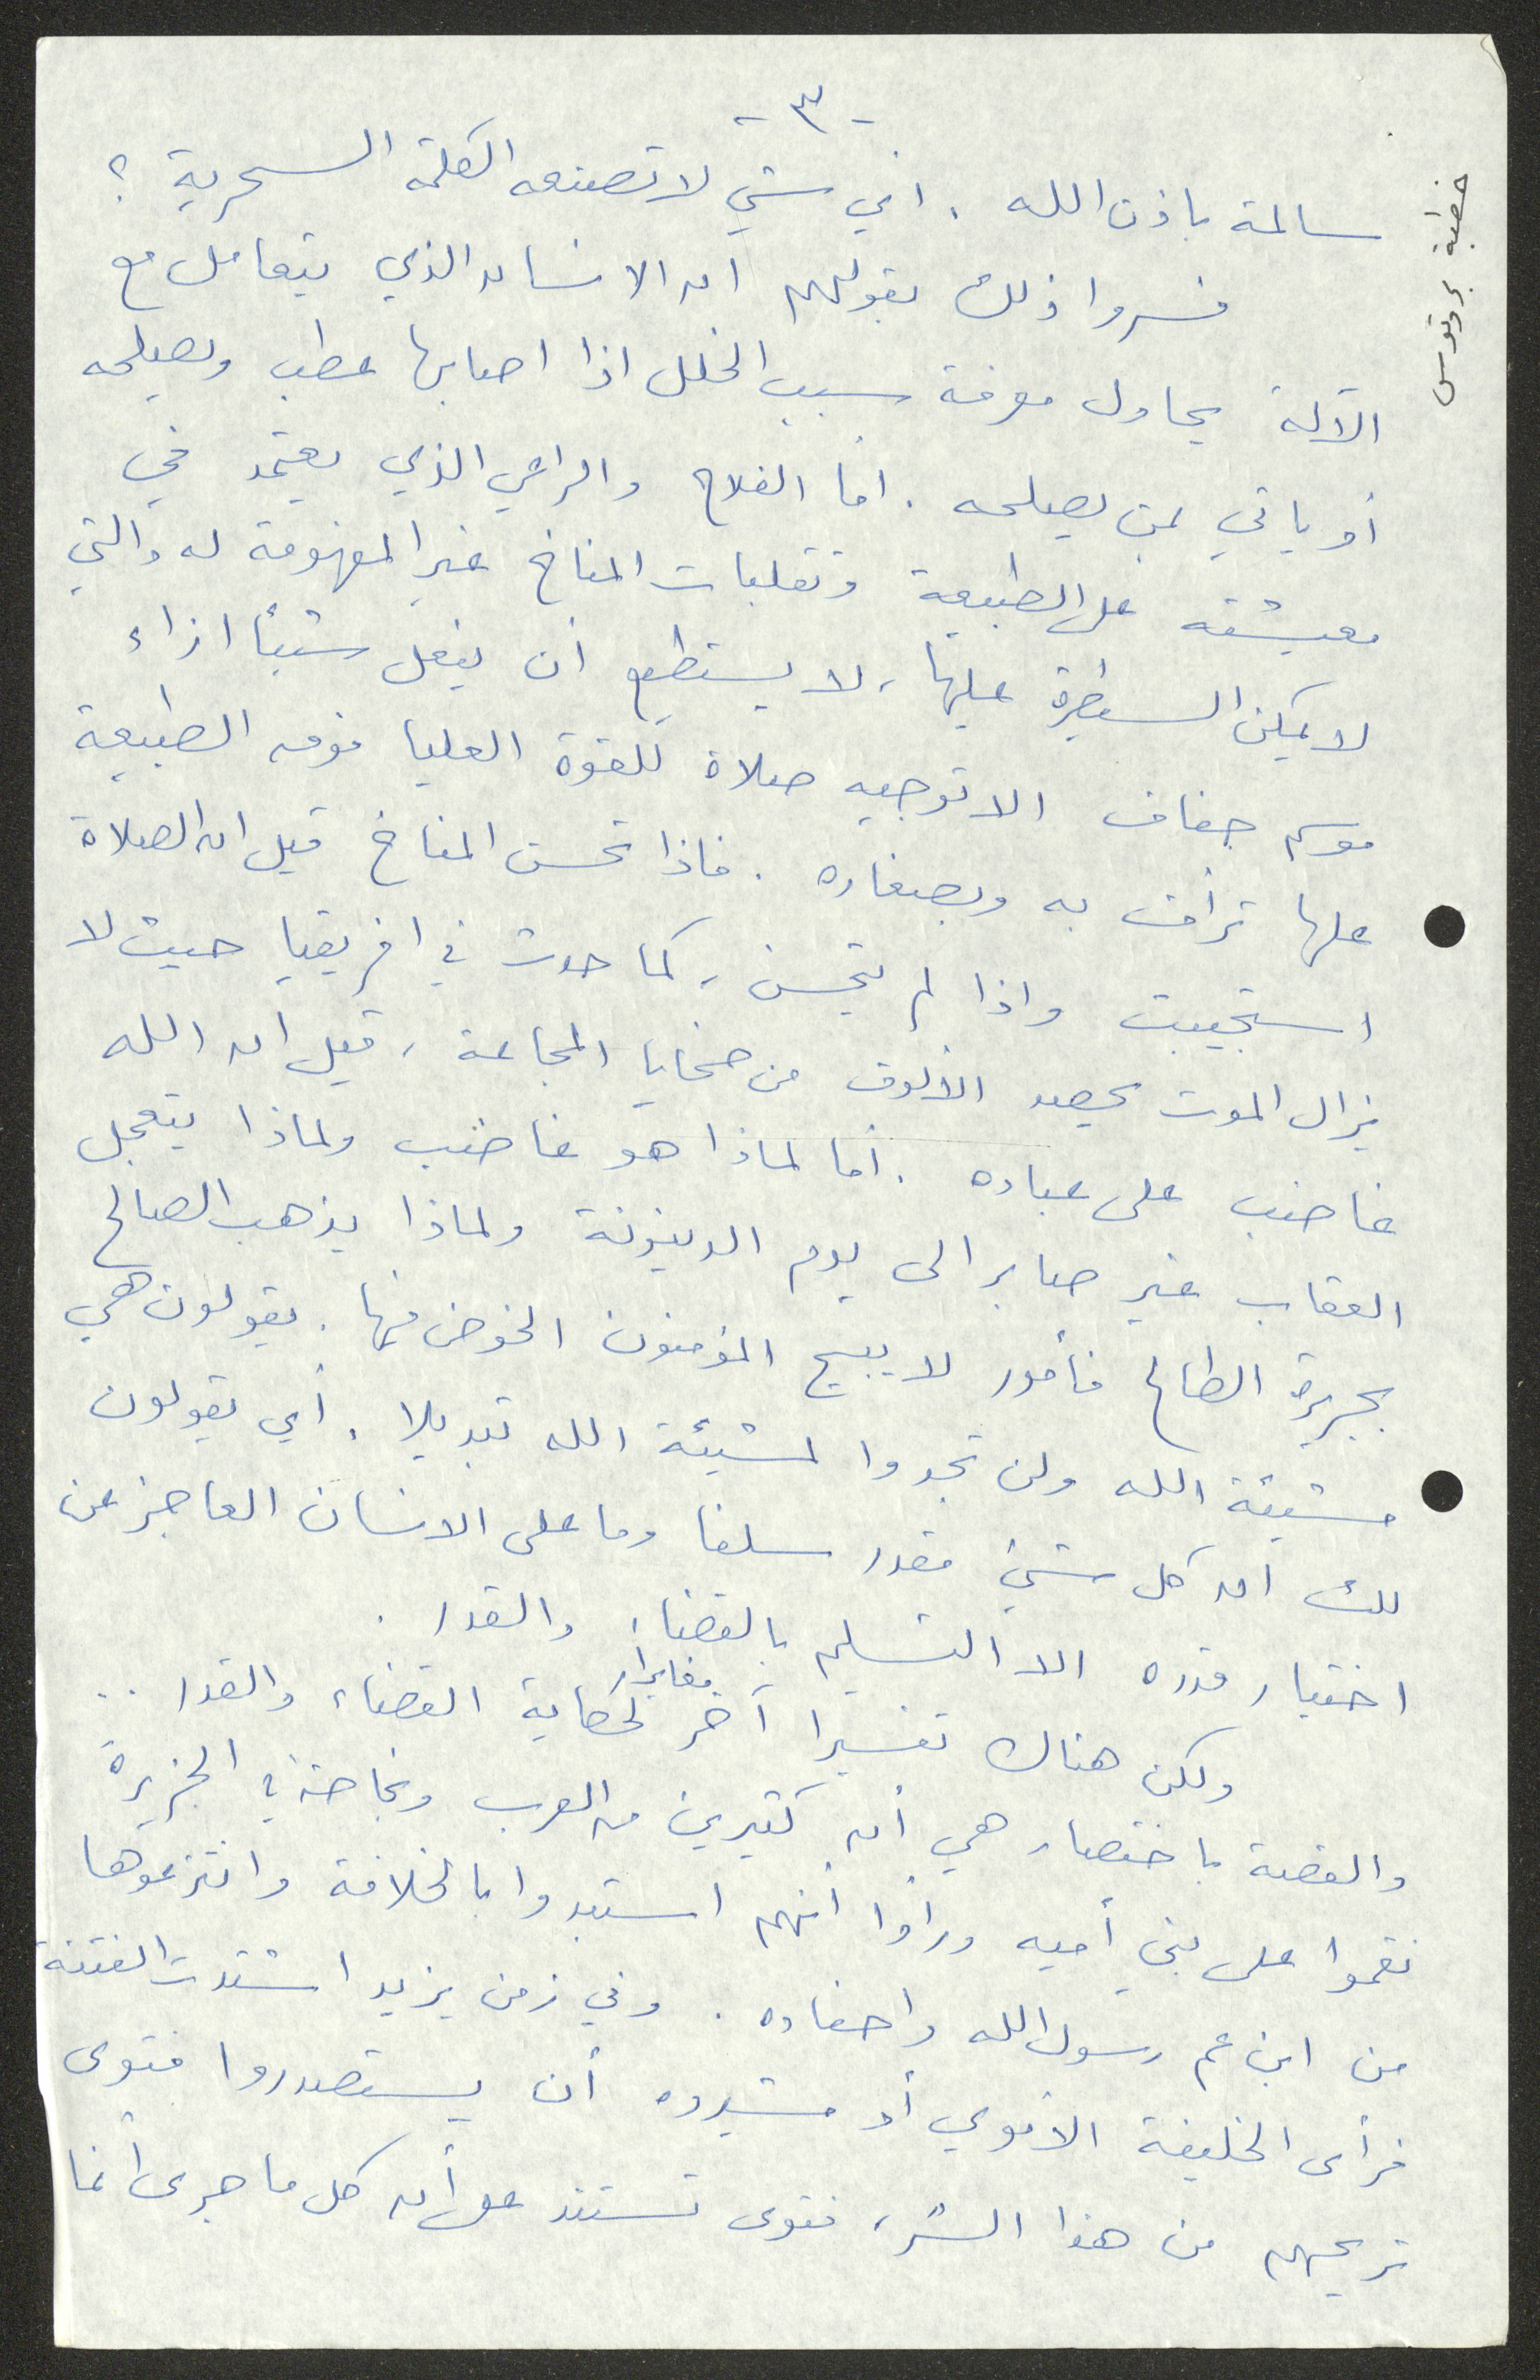 -٣-
سالمة باذن الله . أي شي لا تصنعه الكلمة السحرية ؟
فسروا ذلك بقولهم ان الانسان الذي يتعامل مع
الآلة يحاول معرفة سبب الخلل اذا اصابها عطب ويصلحه
أو ياتي بمن يصلحه . أما الفلاح والراعي الذي يعتمد في
معيشته على الطبيعة وتقلبات المناخ غير المفهومة له والتي
لا يمكن السيطرة عليها ، لا يستطيع أن يفعل شيئا ازاء
موسم جفاف الا توجيه صلاة للقوة العليا فوق الطبيعة
علها ترأف به وبصغاره . فاذا تحسن المناخ قيل ان الصلاة
استجيبت واذا لم يتحسن ، كما حدث في افريقيا حيث لا
يزال الموت يحصد الألوف من ضحايا المجاعة ، قيل ان الله
غاضب على عباده . أما لماذا هو غاضب ولماذا يتعجل
العقاب غير صابر الى يوم الدينونة ولماذا يذهب الصالح
بجريرة الطالح فأمور لا يبيح المؤمنون الخوض فيها . يقولون هي
مشيئة الله ولن تجدوا لمشيئة الله تبديلا . أي يقولون
لك ان كل شيئ مقدر سلفا وما على الانسان العاجز عن
اختيار قدره الا التسليم بالقضاء والقدر .
ولكن هناك تفسيرا آخر مغايرا لحكاية القضاء والقدر ..
والقصة باختصار هي أن كثيرين من العرب وبخاصة في الجزيرة
نقموا على بني أميه ورأوا أنهم استبدوا بالخلافة وانتزعوها
من ابن عم رسول الله واحفاده . وفي زمن يزيد اشتدت الفتنة
فرأى الخليفة الأموي أو مشيروه أن يستصدروا فتوى
تريحهم من هذا الشر ، فتوى تستند على أن كل ما جرى انما
خطبة بروتوس